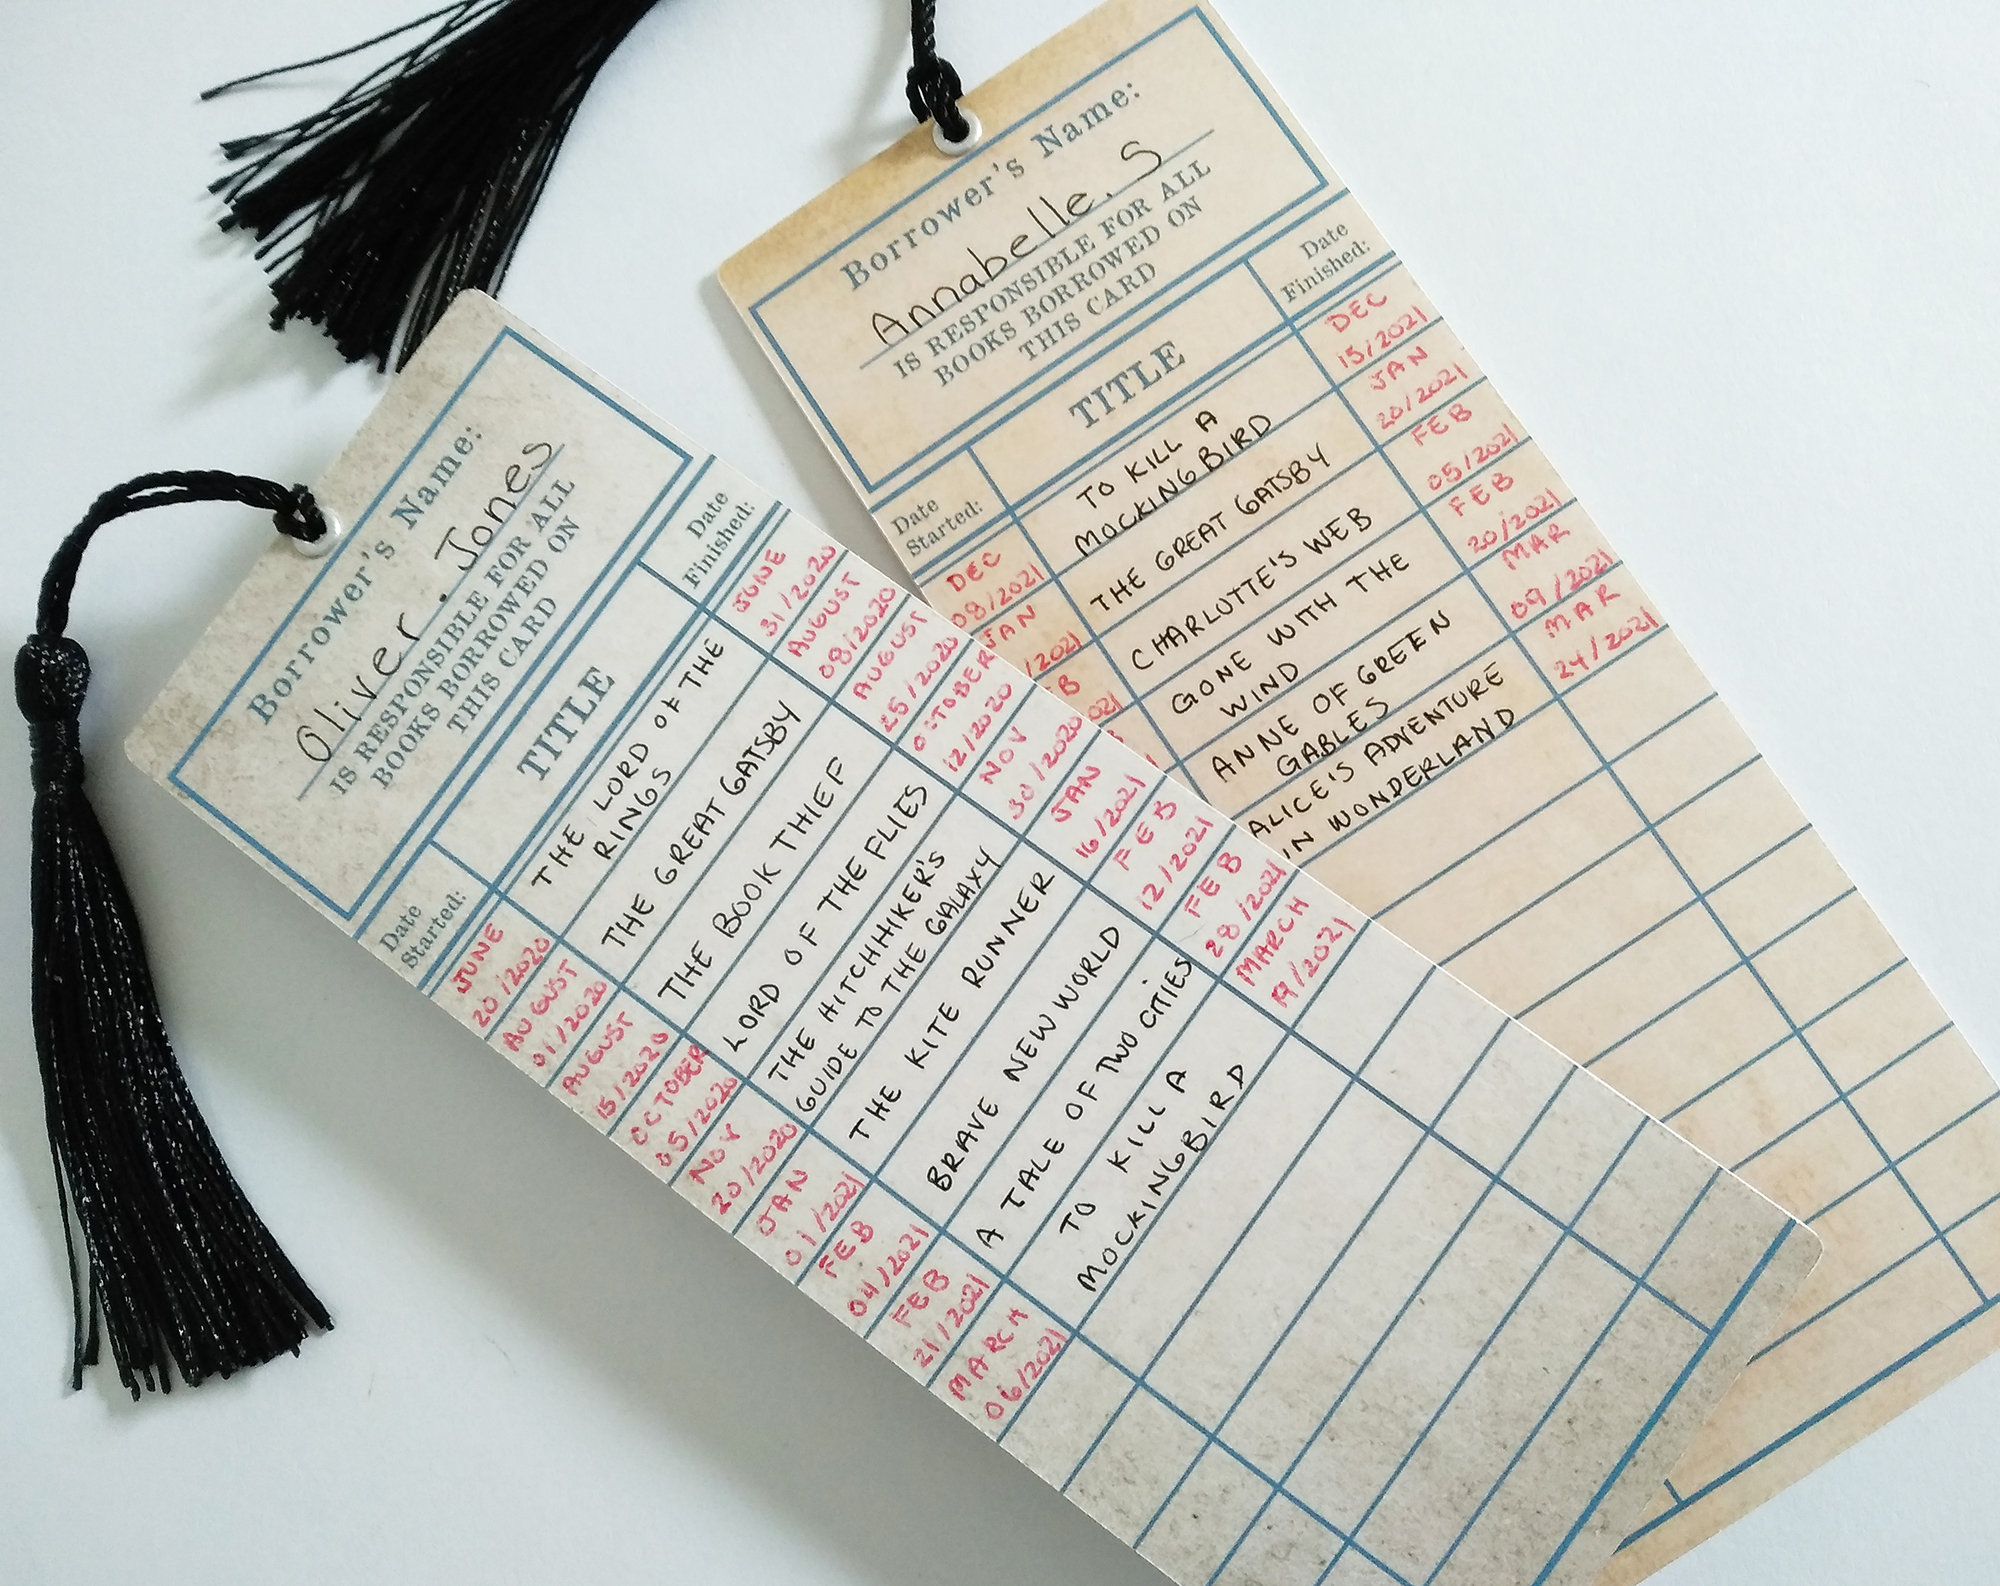 Borrower's Name:
Oliver. Jones
IS RESPONSIBLE FOR ALL
BOOKS BORROWED ON
THIS CARD
Date
Started:
TITLE
Date
Finished:
JUNE
20/2020
THE LORD OF THE
RINGS
JUNE
31/2020
AUGUST
01/2020
THE GREAT GATSBY
AUGUST
08/2020
AUGUST
15/2020
THE BOOK THIEF
AUGUST
25/2020
OCTOBER
05/2020
LORD OF THE FLIES
OCTOBER
12/2020
NOV
20/2020
THE HITCHHIKER'S
GUIDE TO THE GALAXY
NOV
30/2020
JAN
01/2021
THE KITE RUNNER
JAN
16/2021
FEB
04/2021
BRAVE NEW WORLD
FEB
12/2021
FEB
21/2021
A TALE OF TWO CITIES
FEB
28/2021
MARCH
06/2021
TO KILL A
MOCKINGBIRD
MARCH
19/2021
Borrower's Name:
Annabelle. S
IS RESPONSIBLE FOR ALL
BOOKS BORROWED ON
THIS CARD
Date
Started:
TITLE
Date
Finished:
DEC
08/2021
TO KILL A
MOCKINGBIRD
DEC
15/2021
JAN
/2021
THE GREAT GATSBY
JAN
20/2021
CHARLOTTE'S WEB
FEB
05/2021
GONE WITH THE
WIND
FEB
20/2021
ANNE OF GREEN
GABLES
MAR
09/2021
ALICE'S ADVENTURE
IN WONDERLAND
MAR
24/2021